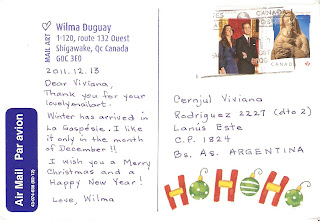 MAIL ART
Wilma Duguay
1-120, route 132 Ouest
Shigawake, Qc Canada
G0C 3E0
2011.12.13
Dear Viviana,
Thank you for your
lovely mailart.
Winter has arrived in
La Gaspésie. I like
it only in the month
of December!!
I wish you a Merry
Christmas and a
Happy New Year!
Love, Wilma
Air Mail Par avion
CANADA
CANADA
Cernjul Viviana
Rodriguez 2227 (dto 2)
Lanus Este
C.P. 1824
Bs. As. ARGENTINA
HOHOHO